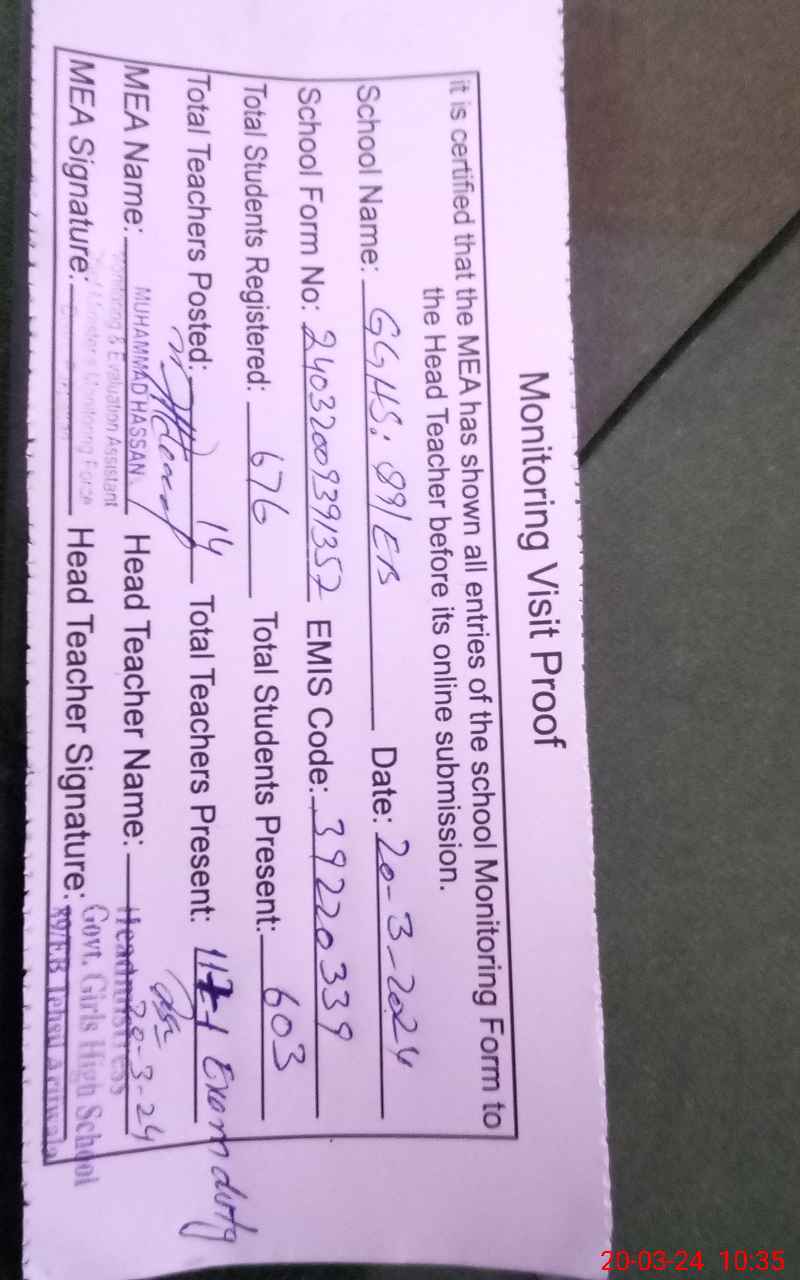 Monitoring Visit Proof
it is certified that the MEA has shown all entries of the school Monitoring Form to
the Head Teacher before its online submission.
School Name: GGHS: 89/EB Date: 20-3-2024
School Form No: 24032009391357 EMIS Code: 39220339
Total Students Registered: 676 Total Students Present: 603
Total Teachers Posted: 14 Total Teachers Present: 11 1 Exam duty
MEA Name: MUHAMMAD HASSAN Head Teacher Name: 20-3-24
Monitoring & Evaluation Assistant
Headmistress
Monitoring Force
Govt. Girls High School
MEA Signature: Head Teacher Signature: 89/EB
20-03-24 10:35